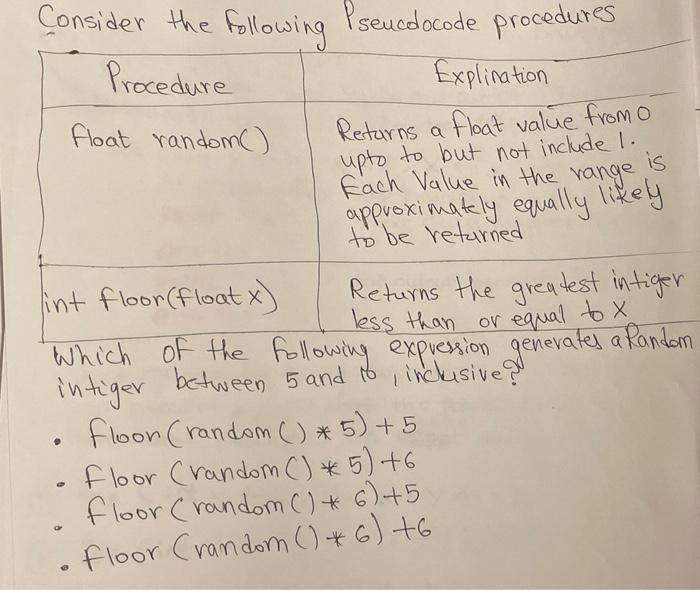 Consider the following Pseucdocode procedures
Procedure
Explination
float random()
Returns a float value from 0
upto to but not include 1.
Each Value in the range is
approximately equally likely
to be returned
int floor(float x)
Returns the greatest intiger
less than or equal to X
Which of the following expression generates a Random
intiger between 5 and 10, inclusive?
• floor(random() * 5) + 5
• floor (random() * 5) +6
• floor (random() * 6) +5
• floor (random() * 6) +6